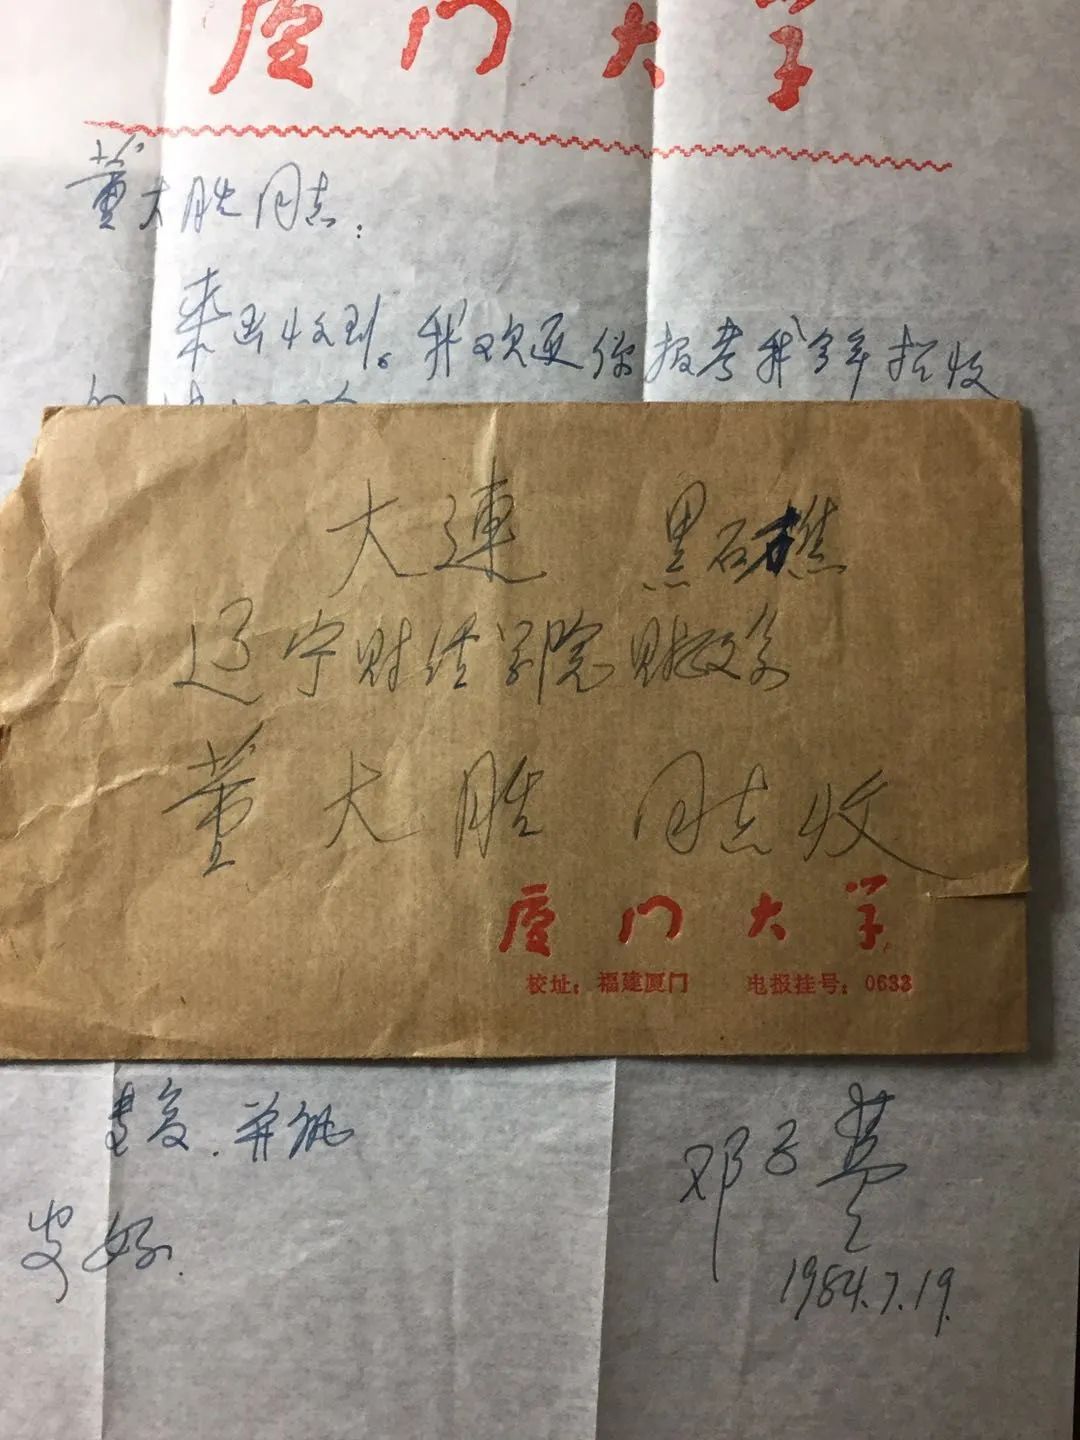 厦门大学
董大胜同志：
来函收到。我欢迎你报考我今年招收
的
大連 黑石礁
辽宁财经学院财政系
董大胜 同志收
厦门大学
校址：福建厦门 电报挂号：0633
专复．并祝
安好．
邓子基
1984.7.19.